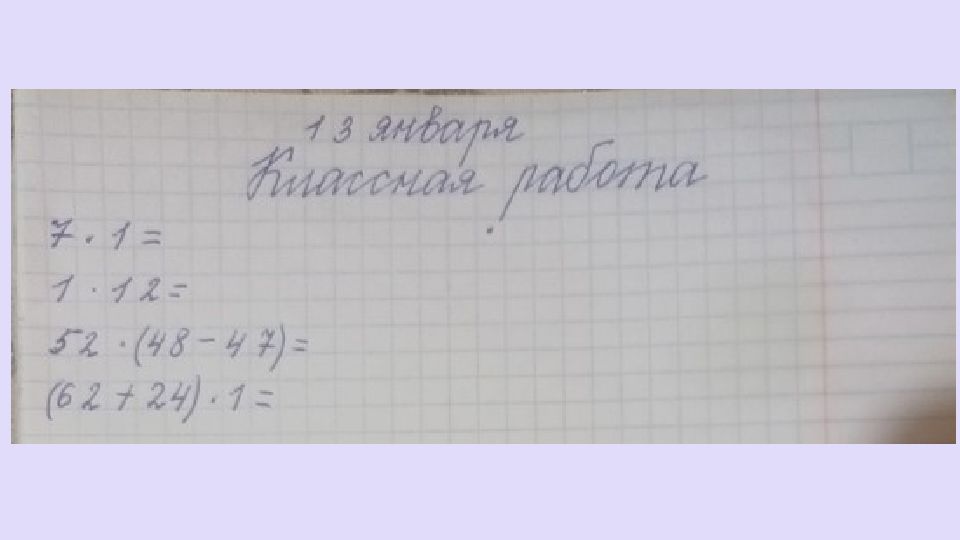 13 января
Классная работа
7 · 1 =
1 · 12 =
52 · (48 - 47) =
(62 + 24) · 1 =